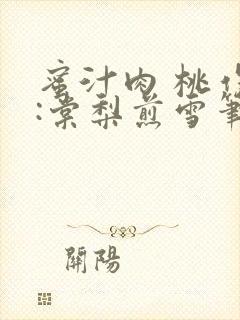 蜜汁肉桃作
:棠梨煎雪筆
開陽